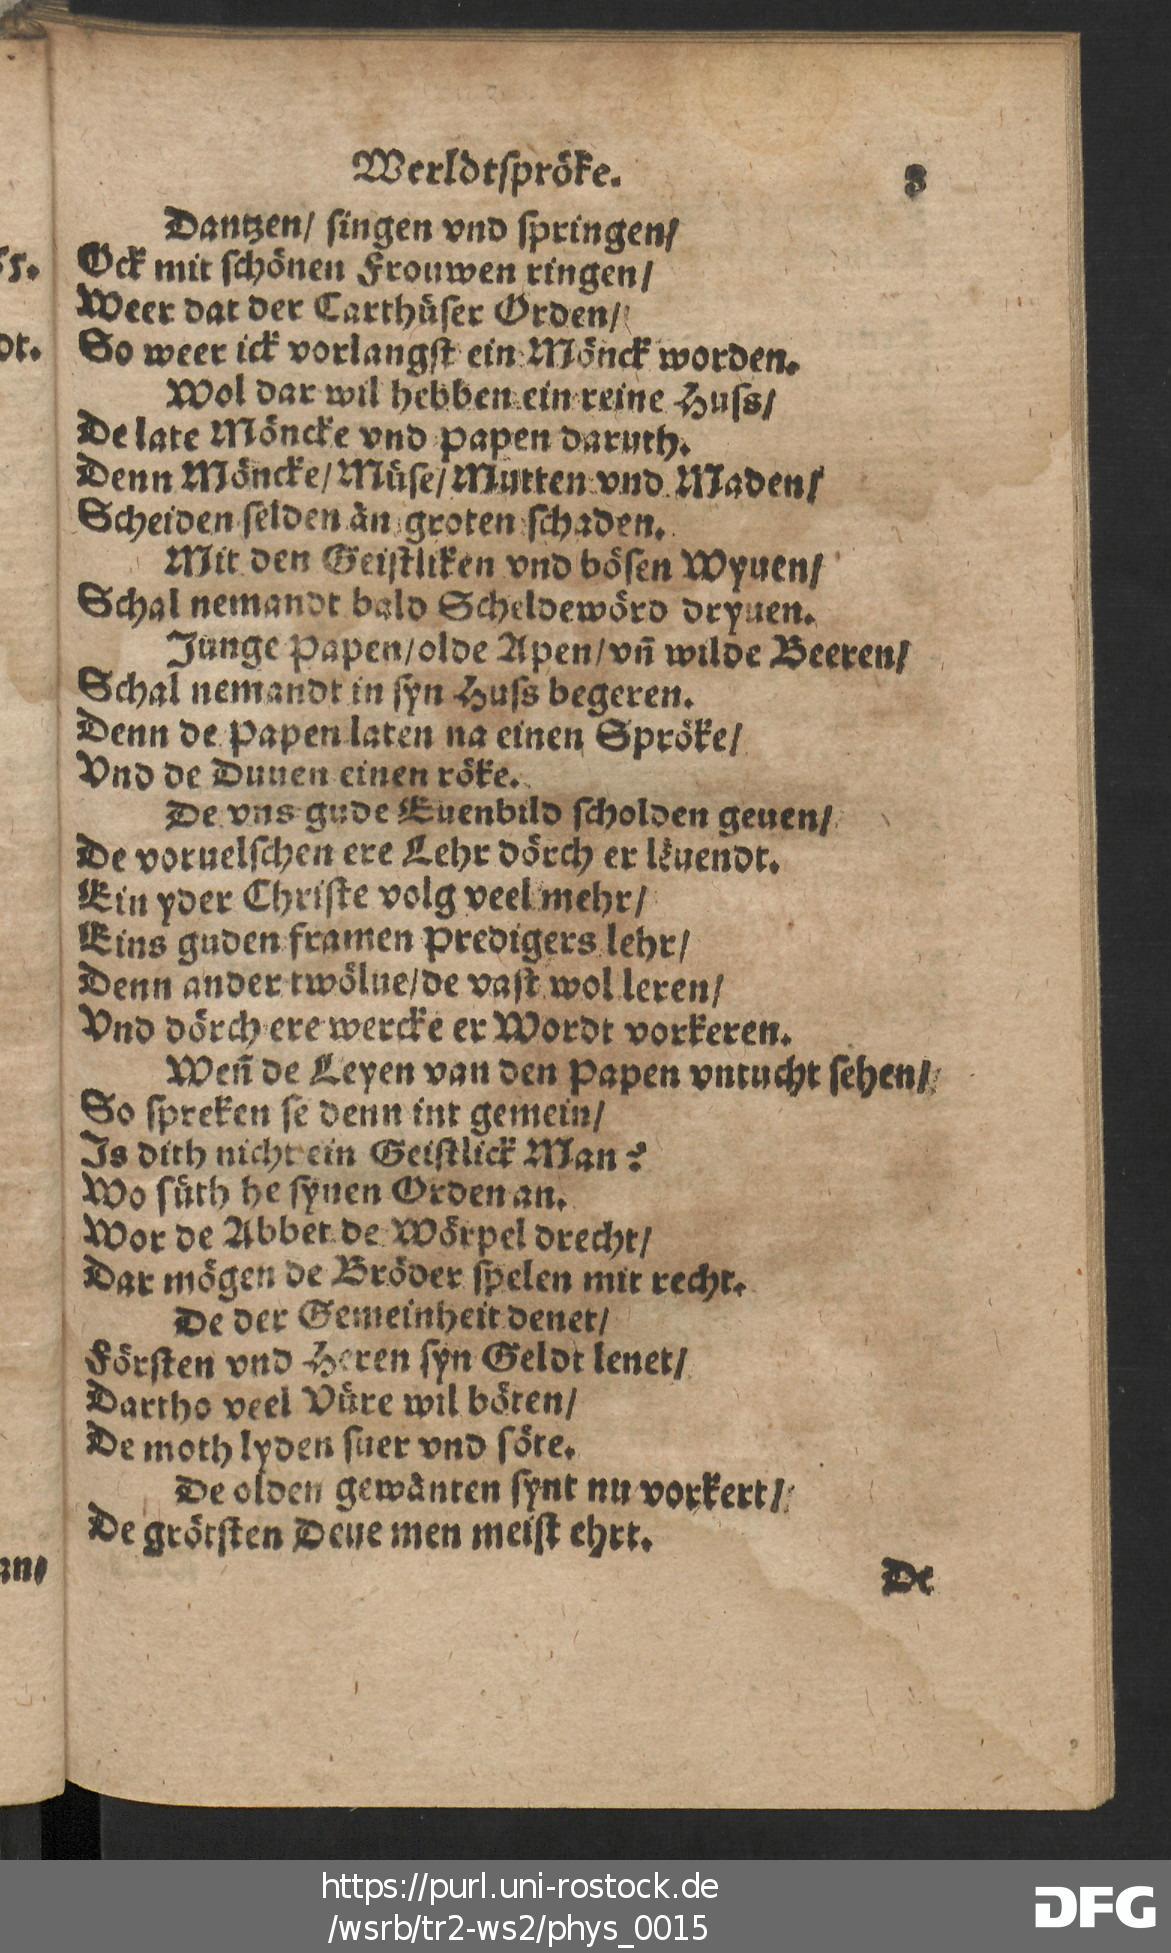 Werldtspröke. 3
Dantzen/ singen vnd springen/
Ock mit schönen Frouwen ringen/
Weer dat der Carthüser Orden/
So weer ick vorlangst ein Mönck worden.
Wol dar wil hebben ein reine Huss/
De late Möncke vnd Papen daruth.
Denn Möncke/ Müse/ Mutten vnd Maden/
Scheiden selden än groten schaden.
Mit den Geistliken vnd bösen Wyuen/
Schal nemandt bald Scheldewörd dryuen.
Junge Papen/ olde Apen/ vn̄ wilde Beeren/
Schal nemandt in syn Huss begeren.
Denn de Papen laten na einen Spröke/
Vnd de Duuen einen röke.
De vns gude Euenbild scholden geuen/
De voruelschen ere Lehr dörch er leuendt.
Ein yder Christe volg veel mehr/
Eins guden framen Predigers lehr/
Denn ander twölue/ de vast wol leren/
Vnd dörch ere wercke er Wordt vorkeren.
Wen̄ de Leyen van den Papen vntucht sehen/
So spreken se denn int gemein/
Is dith nicht ein Geistlick Man?
Wo süth he synen Orden an.
Wor de Abbet de Wörpel drecht/
Dar mögen de Bröder spelen mit recht.
De der Gemeinheit denet/
Försten vnd Heren syn Geldt lenet/
Dartho veel Vüre wil böten/
De moth lyden suer vnd söte.
De olden gewänten synt nu vorkert/
De grötsten Deue men meist ehrt.
De
ss.
dt.
an/
https://purl.uni-rostock.de
/wsrb/tr2-ws2/phys_0015
DFG